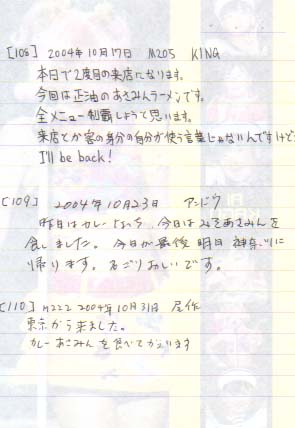 [108] 2004年10月17日 M205 KING
本日で2度目の来店になります。
今回は正油のあさみんラーメンです。
全メニュー制覇しようと思います。
来店とか客の身分の自分が使う言葉じゃないんですけど
I'll be back!
[109] 2004年10月23日 アンドウ
昨日はカレー 今日はみそあさみんを
食しました。今日が最後 明日 神奈川に
帰ります。名ごりおしいです。
[110] M222 2004年10月31日 尾作
東京から来ました。
カレーあさみんを食べてかえります